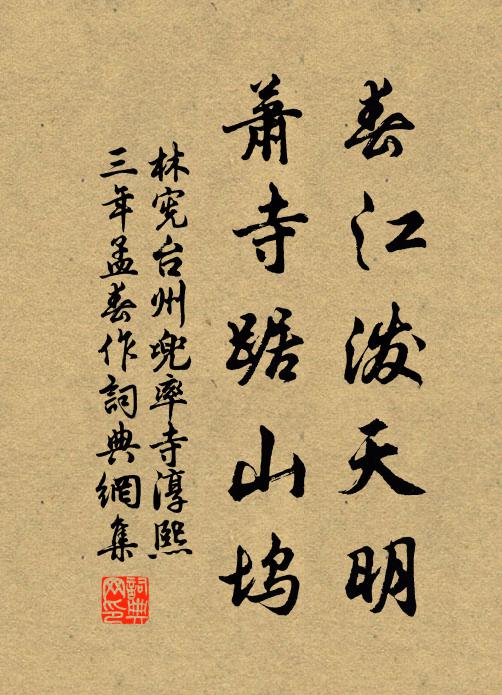 春江泼天明
萧寺踞山坞
林宪台州兜率寺淳熙
三年孟春作詞典網集
詞典
网印